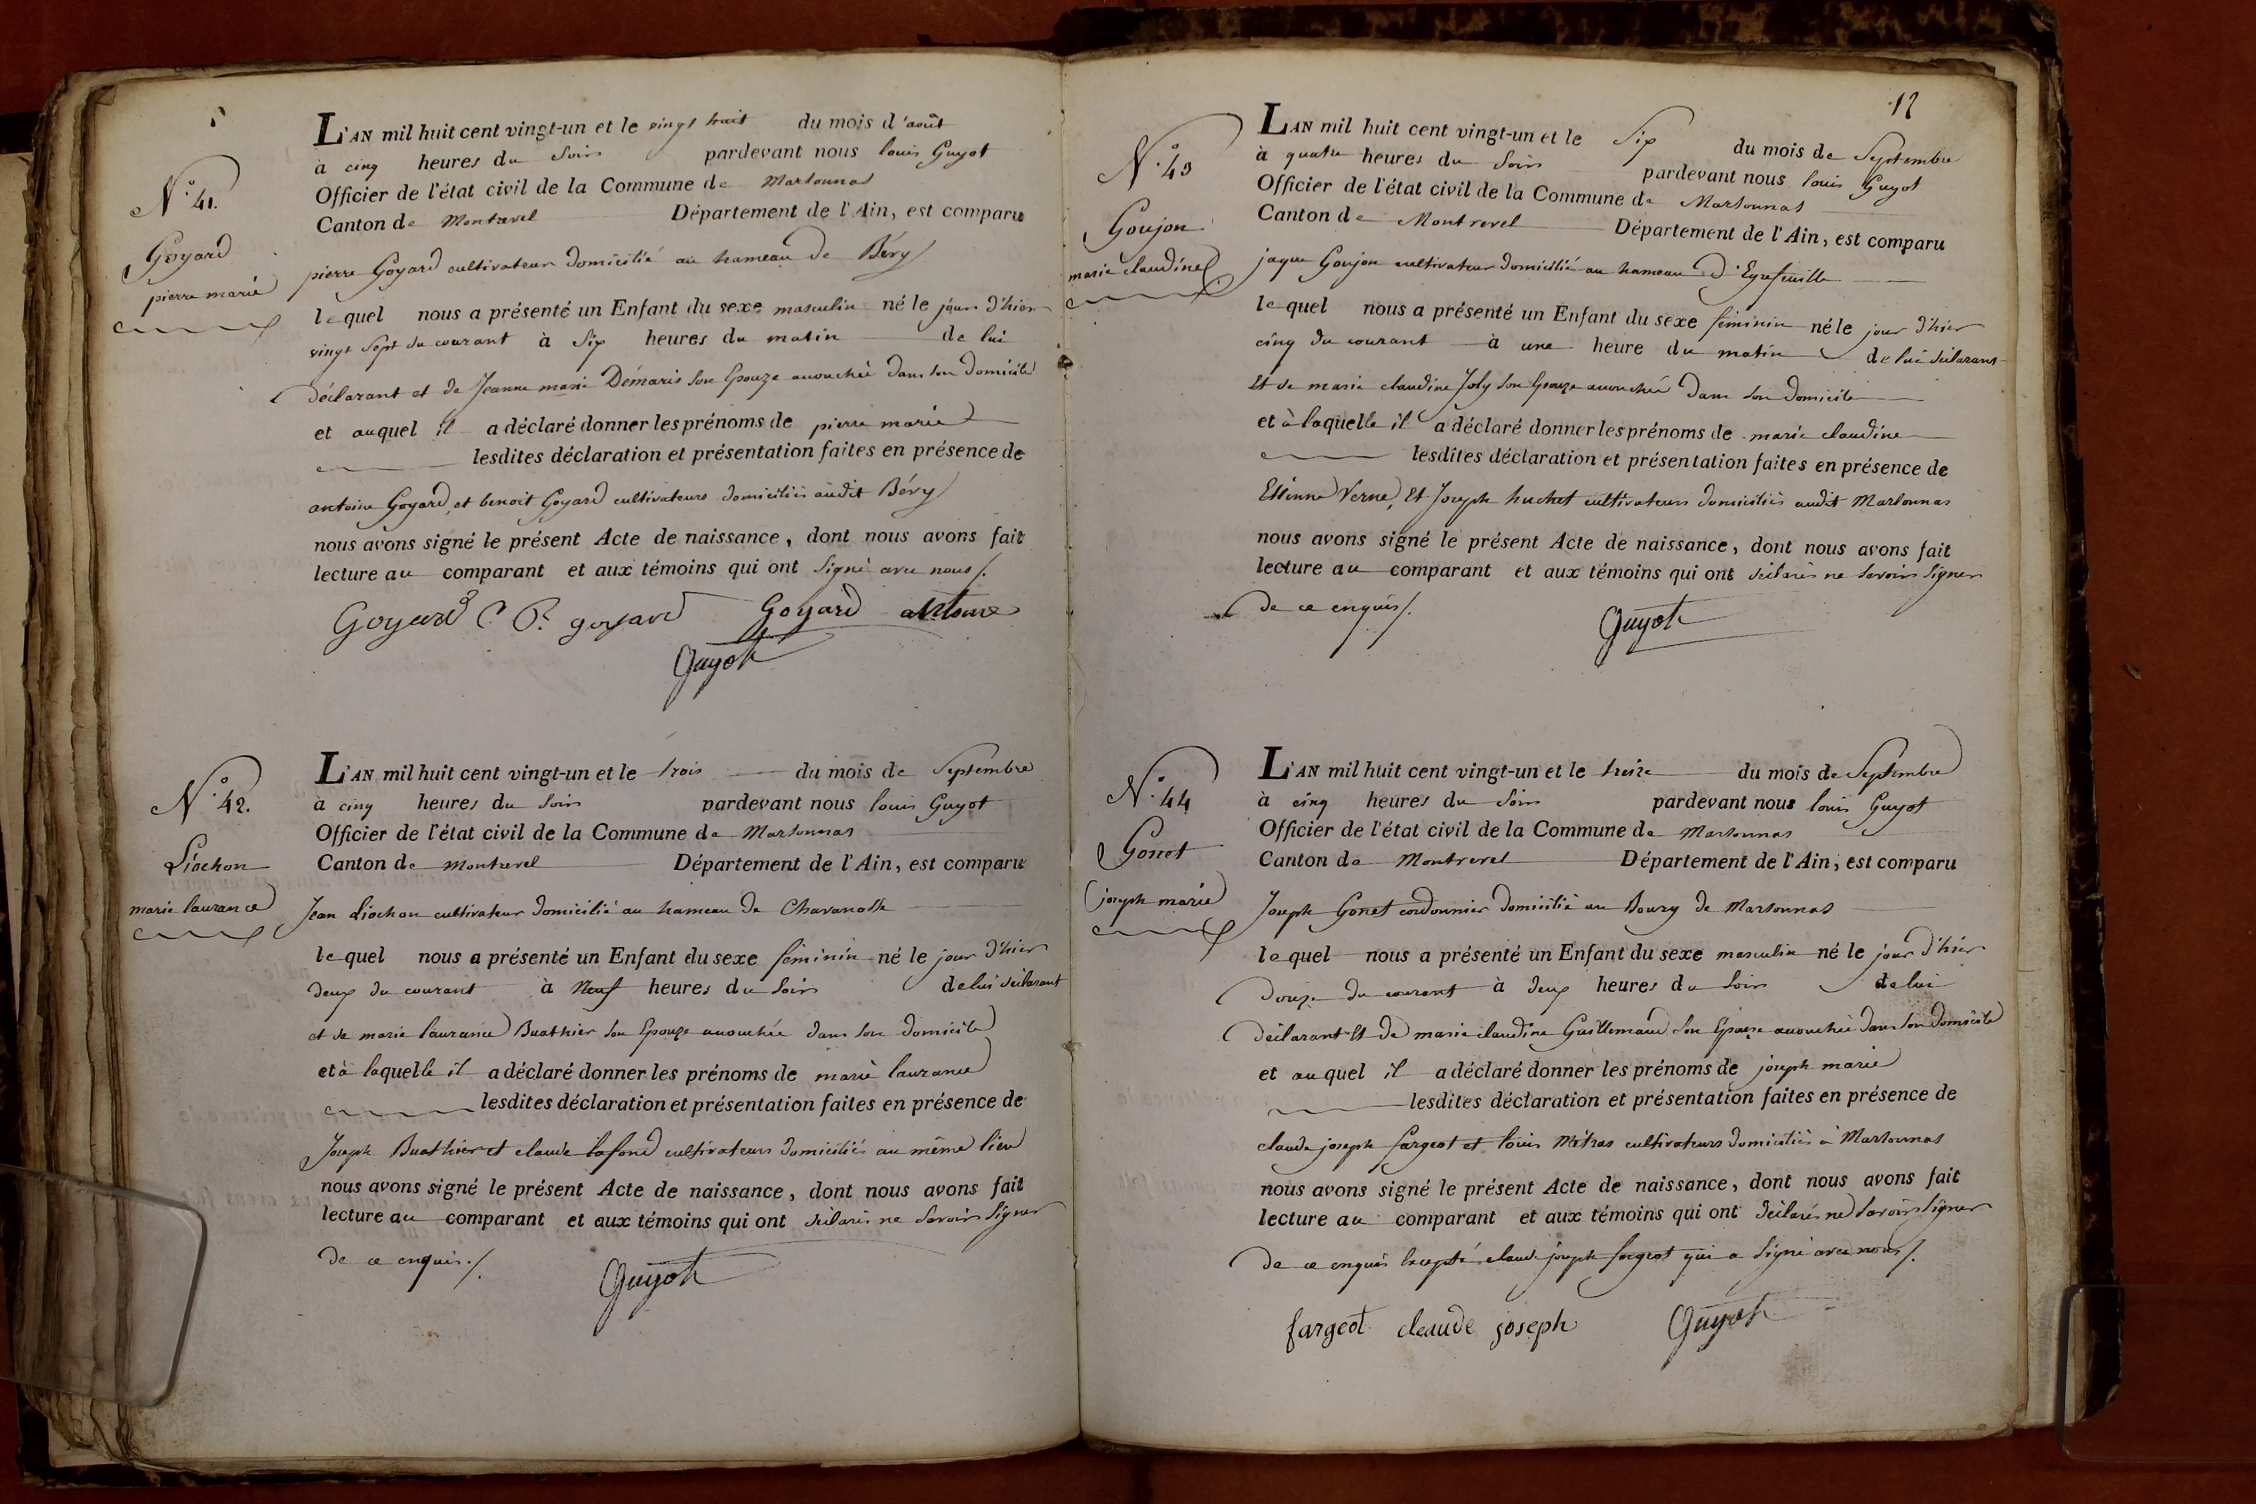 N.° 41.
Goyard
pierre marie
L'AN mil huit cent vingt-un et le vingt huit du mois d'août
à cinq heures du Soir pardevant nous louis Guyot
Officier de l'état civil de la Commune de Marsonnas
Canton de Montrevel Département de l'Ain, est comparu
pierre Goyard cultivateur domicilié au hameau de Bévy
lequel nous a présenté un Enfant du sexe masculin né le jour d'hier
vingt Sept du courant à Six heures du matin de lui
déclarant et de Jeanne marie Démaris son Epouze accouchée dans son domicile
et auquel il a déclaré donner les prénoms de pierre marie
lesdites déclaration et présentation faites en présence de
antoine Goyard, et benoit Goyard cultivateurs domiciliés audit Bévy
nous avons signé le présent Acte de naissance, dont nous avons fait
lecture au comparant et aux témoins qui ont Signé avec nous /.
Goyard P. goyard Goyard antoine
Guyot
N.° 42.
Liochon
marie laurance
L'AN mil huit cent vingt-un et le trois du mois de Septembre
à cinq heures du Soir pardevant nous louis Guyot
Officier de l'état civil de la Commune de Marsonnas
Canton de montrevel Département de l'Ain, est comparu
Jean Liochon cultivateur domicilié au hameau de Chavanosse
lequel nous a présenté un Enfant du sexe féminin né le jour d'hier
deux du courant à Neuf heures du Soir de lui déclarant
et de marie laurance Buathier son Epouze accouchée dans son domicile
et à laquelle il a déclaré donner les prénoms de marie laurance
lesdites déclaration et présentation faites en présence de
Joseph Buathier et claude lafond cultivateurs domiciliés au même lieu
nous avons signé le présent Acte de naissance, dont nous avons fait
lecture au comparant et aux témoins qui ont déclarés ne Savoir Signer
de ce enquis. /.
Guyot
12
N.° 43
Goujon
marie claudine
L'AN mil huit cent vingt-un et le Six du mois de Septembre
à quatre heures du Soir pardevant nous louis Guyot
Officier de l'état civil de la Commune de Marsonnas
Canton de Montrevel Département de l'Ain, est comparu
jaque Goujon cultivateur domicilié au hameau d'Egrefeuille
lequel nous a présenté un Enfant du sexe féminin né le jour d'hier
cinq du courant à une heure du matin de lui déclarant
Et de marie claudine Joly son Epouze accouchée dans son domicile
et à laquelle il a déclaré donner les prénoms de marie claudine
lesdites déclaration et présentation faites en présence de
Etienne Verne, Et Joseph huchet cultivateurs domiciliés audit Marsonnas
nous avons signé le présent Acte de naissance, dont nous avons fait
lecture au comparant et aux témoins qui ont déclarés ne Savoir Signer
de ce enquis /.
Guyot
N.° 44
Gonet
joseph marie
L'AN mil huit cent vingt-un et le treize du mois de Septembre
à cinq heures du Soir pardevant nous louis Guyot
Officier de l'état civil de la Commune de Marsonnas
Canton de Montrevel Département de l'Ain, est comparu
Joseph Gonet cordonnier domicilié au Bourg de Marsonnas
lequel nous a présenté un Enfant du sexe masculin né le jour d'hier
douze du courant à deux heures du Soir de lui
déclarant Et de marie claudine Guillemaud son Epouze accouchée dans son domicile
et auquel il a déclaré donner les prénoms de joseph marie
lesdites déclaration et présentation faites en présence de
claude joseph fargeot et louis Métras cultivateurs domiciliés à Marsonnas
nous avons signé le présent Acte de naissance, dont nous avons fait
lecture au comparant et aux témoins qui ont déclarés ne Savoir Signer
de ce enquis Excepté claude joseph fargeot qui a Signé avec nous /.
fargeot claude joseph Guyot